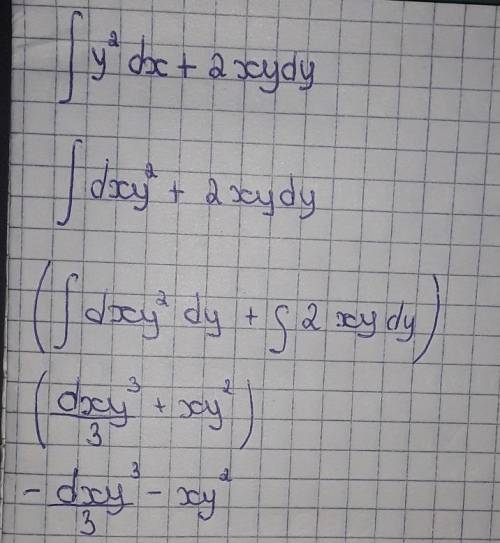 ∫ y² dx + 2xydy
∫ dxy² + 2xydy
(∫ dxy² dy + ∫ 2xydy)
(dxy³/3 + xy²)
- dxy³/3 - xy²